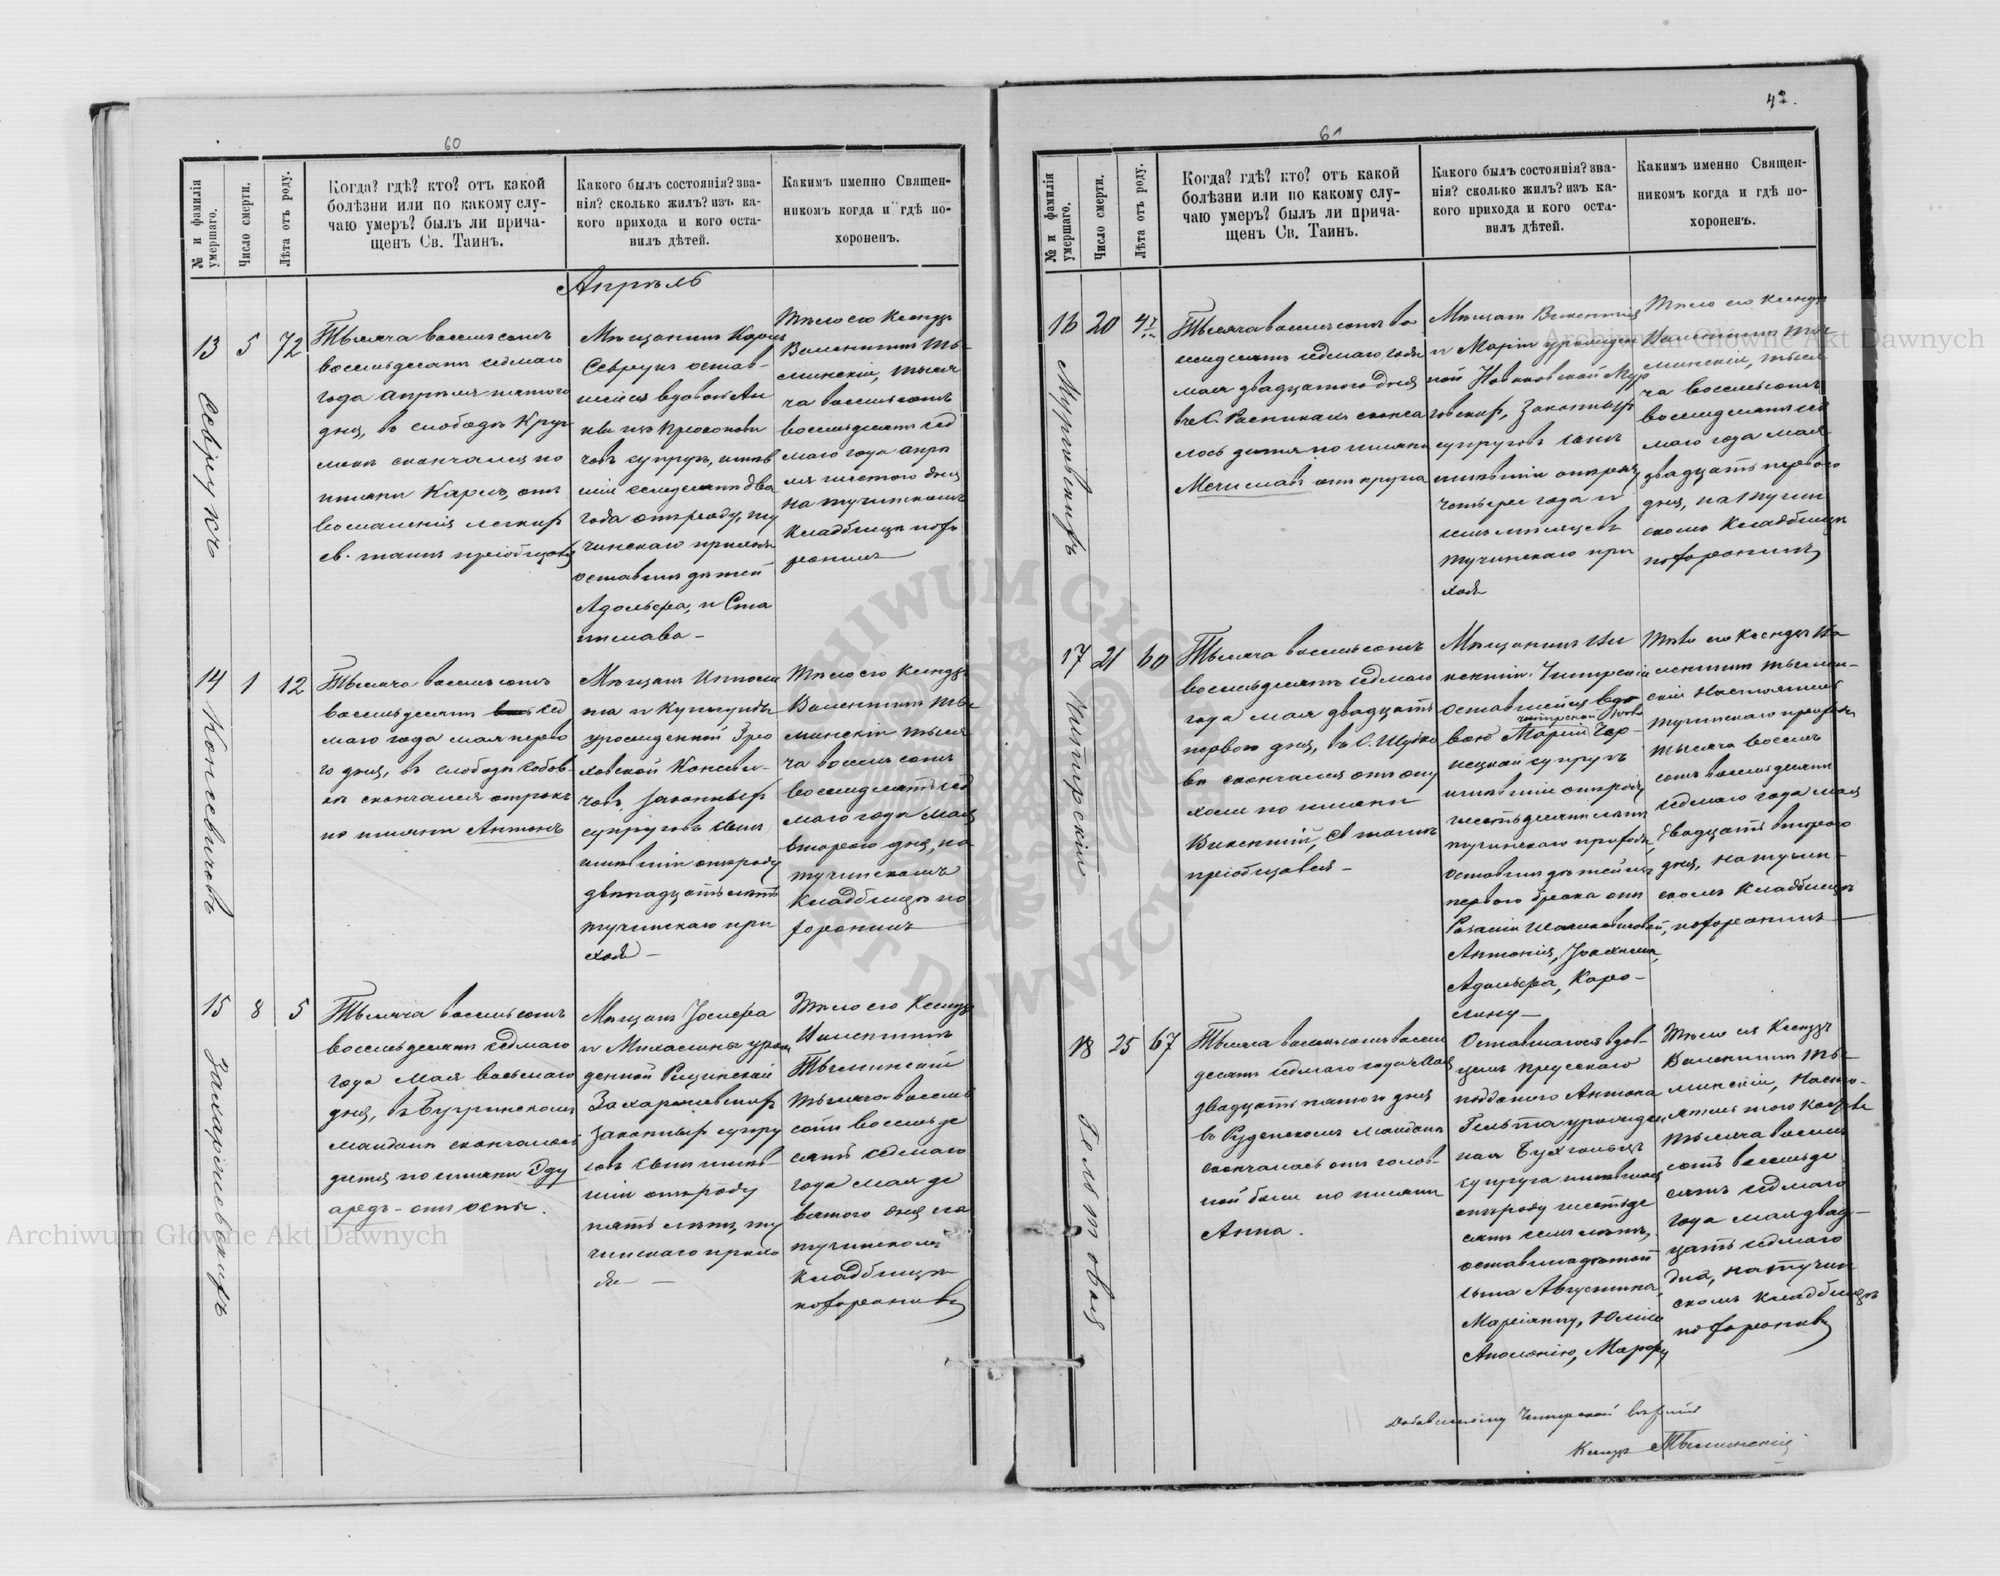 60
№ и фамилія умершаго.
Число смерти.
Лѣта отъ роду.
Когда? гдѣ? кто? отъ какой
болѣзни или по какому слу-
чаю умеръ? былъ ли прича-
щенъ Св. Таинъ.
Какого былъ состоянія? зва-
нія? сколько жилъ? изъ ка-
кого прихода и кого оста-
вилъ дѣтей.
Какимъ именно Священ-
никомъ когда и гдѣ по-
хороненъ.
Апрѣль
13 5 72
Севрукъ
Тысяча восемьсотъ
восемьдесятъ седьмаго
года апрѣля пятого
дня, въ слободѣ
скончался по
имени Карлъ, отъ
воспаленія легкихъ
св. таинъ пріобщевъ
Мѣщанинъ Карлъ
Севрукъ остав-
шійся вдовой Ан
ны изъ
чевъ супругъ, имѣв
шій семьдесятъ два
года отъ роду, ту
чинскаго прихода
оставилъ дѣтей
Адольфа, и Ста
нислава -
Тѣло его Ксендзъ
Валентинъ Ты-
слинскій, тыся
ча восемьсотъ
восемьдесятъ сед
маго года апрѣ
ля шестого дня
на тучинскомъ
кладбищѣ похо
ронилъ
14 1 12
Концевичовъ
Тысяча восемьсотъ
восемьдесятъ сед
маго года мая перво
го дня, въ слободѣ
скончался отрокъ
по имени Антонъ
Мѣщанъ
та и Кунегунды
урожденной
ховской Концеви-
човъ, законныхъ
супруговъ сынъ
имѣвшій отъ роду
двѣнадцать лѣтъ
тучинскаго при
хода -
Тѣло его Ксендзъ
Валентинъ Ты
слинскій тыся
ча восемьсотъ
восемдесятъ сед
маго года мая
второго дня, на
тучинскомъ
кладбищѣ по
хоронилъ
15 8 5
Захаржевскихъ
Тысяча восемьсотъ
восемьдесятъ седмаго
года мая восьмаго
дня, въ Бугринскомъ
майданѣ скончалось
дитя по имени Эду
ардъ - отъ оспы.
Мѣщанъ Іосифа
и Михалины урож
денной
Захаржевскихъ
законныхъ супру
говъ сынъ имѣв-
шій отъ роду
пять лѣтъ, ту
чинскаго прихо
да -
Тѣло его Ксендзъ
Валентинъ
Тыслинскій
тысяча восемь
сотъ восемьде
сятъ седмаго
года мая де
вятого дня на
тучинскомъ
кладбищѣ
похоронивъ
42.
61
№ и фамилія умершаго.
Число смерти.
Лѣта отъ роду.
Когда? гдѣ? кто? отъ какой
болѣзни или по какому слу-
чаю умеръ? былъ ли прича-
щенъ Св. Таинъ.
Какого былъ состоянія? зва-
нія? сколько жилъ? изъ ка-
кого прихода и кого оста-
вилъ дѣтей.
Какимъ именно Священ-
никомъ когда и гдѣ по-
хороненъ.
16 20 4
Тысяча восемьсотъ во
семдесятъ седмаго года
мая двадцатого дня
въ С. сконча
лось дитя по имени
Мечиславъ отъ крупа
Мѣщанъ Викентія
и Маріи урожден
ной Новаковской
законныхъ
супруговъ сынъ
имѣвшій отъ роду
четыре года и
семь мѣсяцевъ
тучинскаго при
хода
Тѣло его Ксендзъ
Валентинъ Ты
слинскій, тыся
ча восемьсотъ
восемдесятъ сед
маго года мая
двадцать перваго
дня, на тучин
скомъ кладбищѣ
похоронилъ
17 21 60
Чипирскій
Тысяча восемьсотъ
восемьдесятъ седмаго
года мая двадцать
первого дня, въ С. Шубко
въ скончался отъ опу
холи по имени
Викентій, св таинъ
пріобщався -
Мѣщанинъ Ви
кентій Чипирскій
оставшейся вдо
вою Маріи
супругъ
имѣвшій отъ роду
шестьдесятъ лѣтъ
тучинскаго прихода
оставилъ дѣтей изъ
первого брака отъ
Розаліи
Антонія, Іоахима,
Адольфа, Каро-
лину -
Тѣло его Ксендзъ Ва
лентинъ Тыслин-
скій Настоятель
тучинскаго прихода
тысяча восемь
сотъ восемьдесятъ
седмаго года мая
двадцать второго
дня, на тучин-
скомъ кладбищѣ
похоронилъ
18 25 67
Гельтовая
Тысяча восемьсотъ восем
десятъ седмаго года мая
двадцать пятого дня
въ Руденскомъ майданѣ
скончалась отъ голов-
ной боли по имени
Анна.
Оставшагося вдов-
цемъ прусскаго
подданого Антона
Гельта урожден
ная
супруга имѣвшая
отъ роду шестьде
сятъ семь лѣтъ,
оставила дѣтей
сына Августина,
Маріанну, Юлію
Аполонію, Марфу
Тѣло ея Ксендзъ
Валентинъ Ты-
слинскій, Насто-
ятель того костёла
тысяча восемь
сотъ восемьде
сятъ седмаго
года мая двад-
цать седмаго
дня, на тучин
скомъ кладбищѣ
похоронивъ
Ксендзъ Тыслинскій
Archiwum Główne Akt Dawnych
Archiwum Główne Akt Dawnych
ARCHIWUM GŁÓWNE AKT DAWNYCH